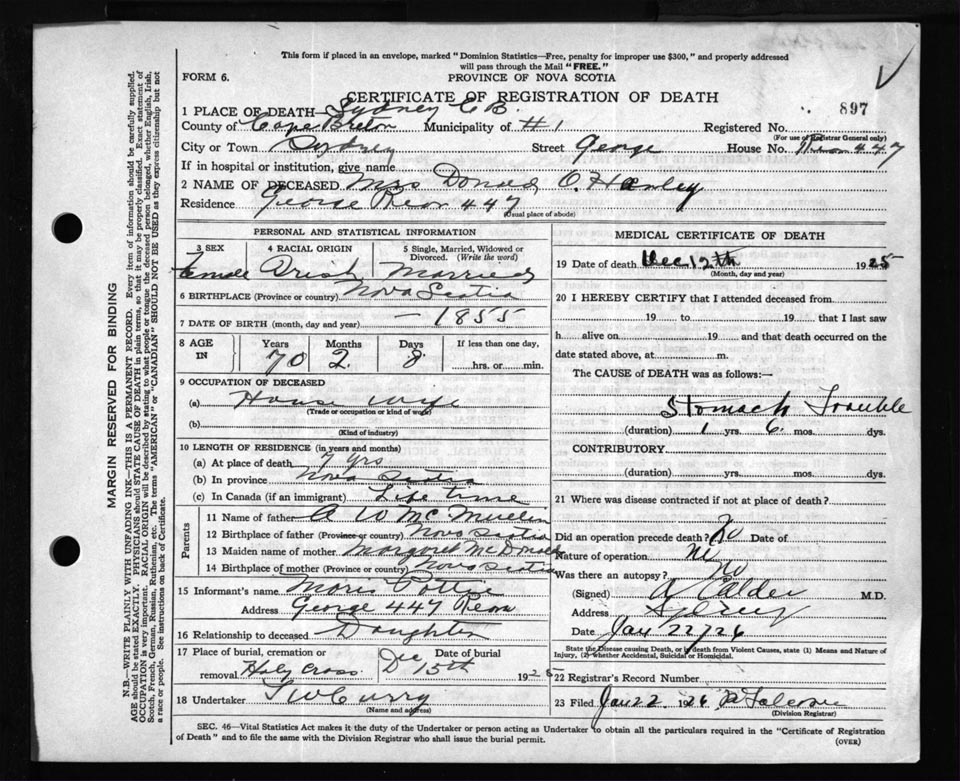 This form if placed in an envelope, marked "Dominion Statistics—Free, penalty for improper use $300," and properly addressed
will pass through the Mail "FREE."
FORM 6.
PROVINCE OF NOVA SCOTIA
CERTIFICATE OF REGISTRATION OF DEATH
897
1 PLACE OF DEATH— Sydney C B.
County of Cape Breton Municipality of #1 Registered No.
(For use of Registrar General only)
City or Town Sydney Street George House No. Rear 447
If in hospital or institution, give name
2 NAME OF DECEASED Mrs Donald O. Hanley
Residence George Rear 447
(Usual place of abode)
PERSONAL AND STATISTICAL INFORMATION
3 SEX 4 RACIAL ORIGIN 5 Single, Married, Widowed or Divorced. (Write the word)
Female Irish Married
6 BIRTHPLACE (Province or country) Nova Scotia
7 DATE OF BIRTH (month, day and year) — 1855
8 AGE IN Years Months Days If less than one day,
70 2 8 hrs. or min.
9 OCCUPATION OF DECEASED
(a) House wife
(Trade or occupation or kind of work)
(b)
(Kind of industry)
10 LENGTH OF RESIDENCE (in years and months)
(a) At place of death 7 yrs
(b) In province Nova Scotia
(c) In Canada (if an immigrant) Life time
Parents
11 Name of father A W Mc Mullin
12 Birthplace of father (Province or country) Nova Scotia
13 Maiden name of mother Margaret McDonald
14 Birthplace of mother (Province or country) Nova Scotia
15 Informant's name Pottie
Address George 447 Rear
16 Relationship to deceased Daughter
17 Place of burial, cremation or removal Date of burial
Holy Cross Dec 15th 1925
18 Undertaker Curry
(Name and address)
MEDICAL CERTIFICATE OF DEATH
19 Date of death Dec 12th 1925
(Month, day and year)
20 I HEREBY CERTIFY that I attended deceased from
19 to 19 that I last saw
h alive on 19 and that death occurred on the
date stated above, at m.
The CAUSE of DEATH was as follows:—
Stomach Trouble
(duration) 1 yrs. 6 mos. dys.
CONTRIBUTORY
(duration) yrs. mos. dys.
21 Where was disease contracted if not at place of death?
Did an operation precede death? No Date of
Nature of operation
Was there an autopsy? no
(Signed) Calder M.D.
Address Sydney
Date Jan 22/26
State the Disease causing Death, or in death from Violent Causes, state (1) Means and Nature of Injury, (2) whether Accidental, Suicidal or Homicidal.
22 Registrar's Record Number
23 Filed Jan 22 1926
(Division Registrar)
SEC. 46—Vital Statistics Act makes it the duty of the Undertaker or person acting as Undertaker to obtain all the particulars required in the "Certificate of Registration
of Death" and to file the same with the Division Registrar who shall issue the burial permit.
(OVER)
MARGIN RESERVED FOR BINDING
N.B.—WRITE PLAINLY WITH UNFADING INK—THIS IS A PERMANENT RECORD. Every item of information should be carefully supplied.
AGE should be stated EXACTLY. PHYSICIANS should STATE CAUSE OF DEATH in plain terms, so that it may be properly classified. Exact statement of
OCCUPATION is very important. RACIAL ORIGIN will be described by stating to what people or tongue the deceased person belonged, whether English, Irish,
Scotch, French, German, Russian, Ruthenian, etc. The terms "AMERICAN" or "CANADIAN" SHOULD NOT BE USED as they express citizenship but not
a race or people. See instructions on back of Certificate.